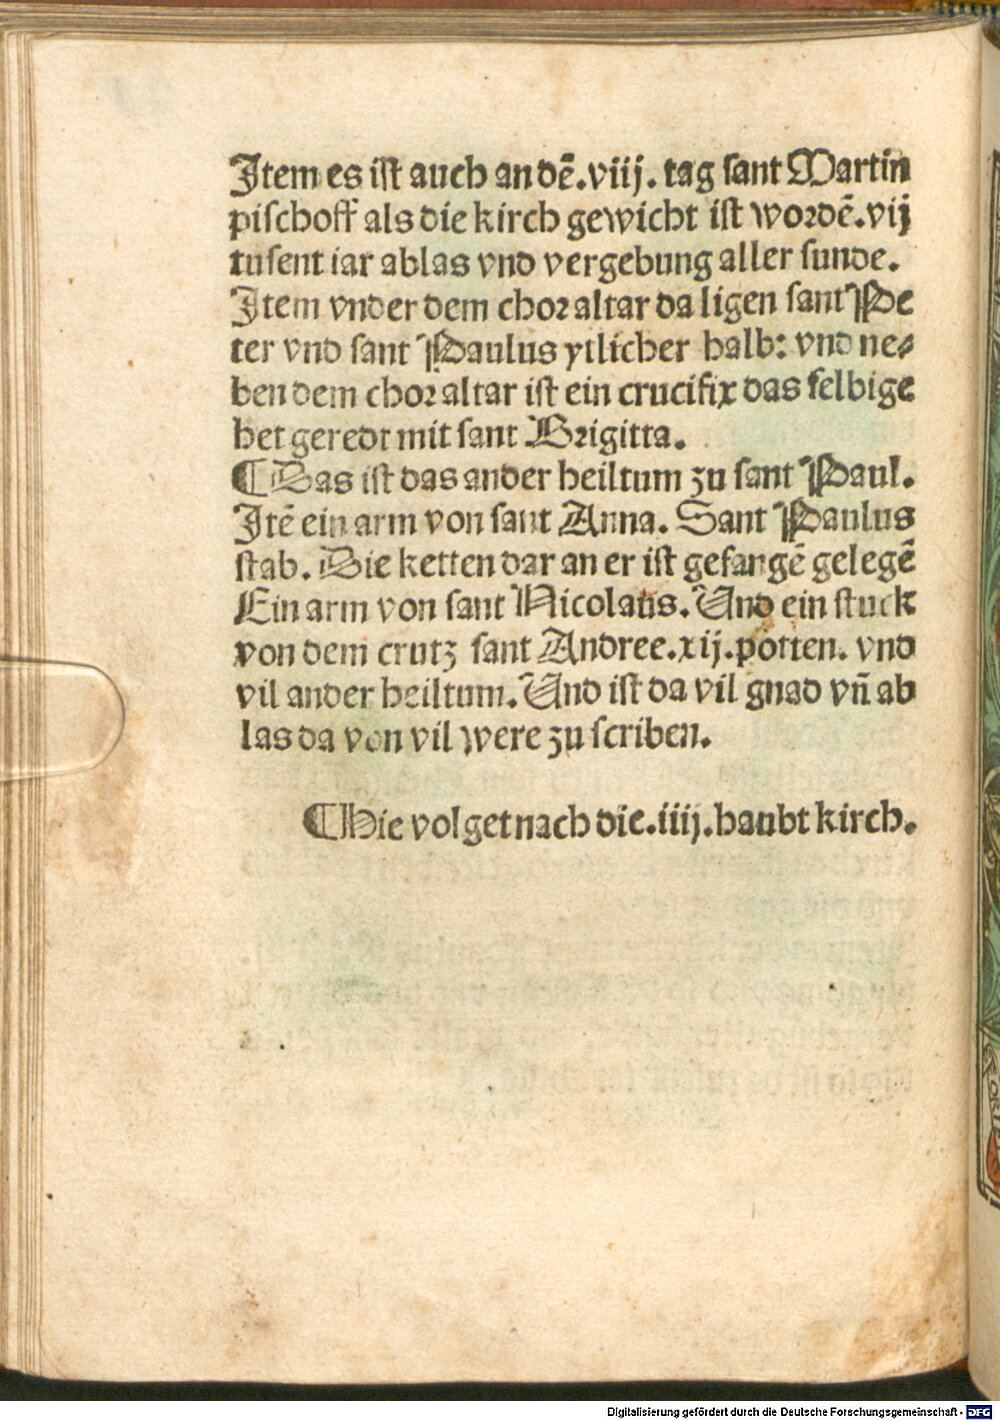 Item es ist auch an dē.viij. tag sant Martin
pischoff als die kirch gewicht ist wordē.vij
tusent iar ablas vnd vergebung aller sunde.
Item vnder dem chor altar da ligen sant Pe
ter vnd sant Paulus ytlicher halb: vnd ne⸗
ben dem chor altar ist ein crucifix das selbige
het geredt mit sant Brigitta.
¶ Das ist das ander heiltum zu sant Paul.
Itē ein arm von sant Anna. Sant Paulus
stab. Die ketten dar an er ist gefangē gelegē
Ein arm von sant Nicolaus. Und ein stuck
von dem crutz sant Andree.xij.potten. vnd
vil ander heiltum. Und ist da vil gnad vñ ab
las da von vil were zu scriben.
¶ Hie volget nach die.iiij.haubt kirch.
Digitalisierung gefördert durch die Deutsche Forschungsgemeinschaft - DFG